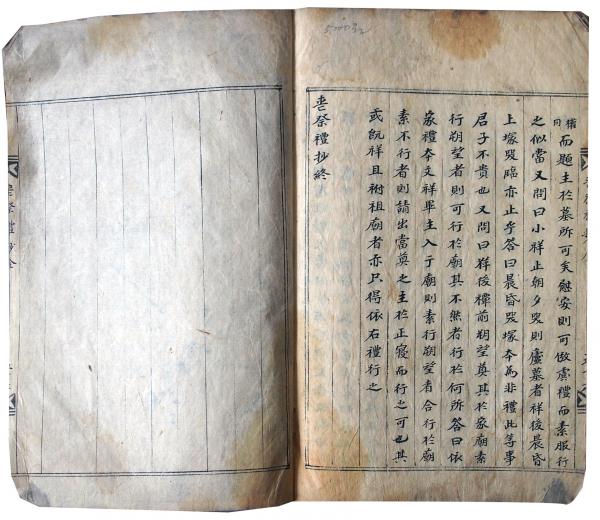 猶用而題主於墓所可矣慰安則可倣虞禮而素服行
之似當又問曰小祥止朝夕哭則廬墓者祥後晨昏
上塚哭臨亦止乎答曰晨昏哭塚本為非禮此等事
君子不貴也又問曰祥後禫前朔望奠其於家廟素
行朔望者則可行於廟其不然者行於何所答曰依
家禮本文祥畢主入于廟則素行朔望者合行於廟
素不行者則請出當奠之主於正寢而行之可也其
或旣祥且祔祖廟者亦只得依右禮行之
喪祭禮抄終
喪祭禮抄全